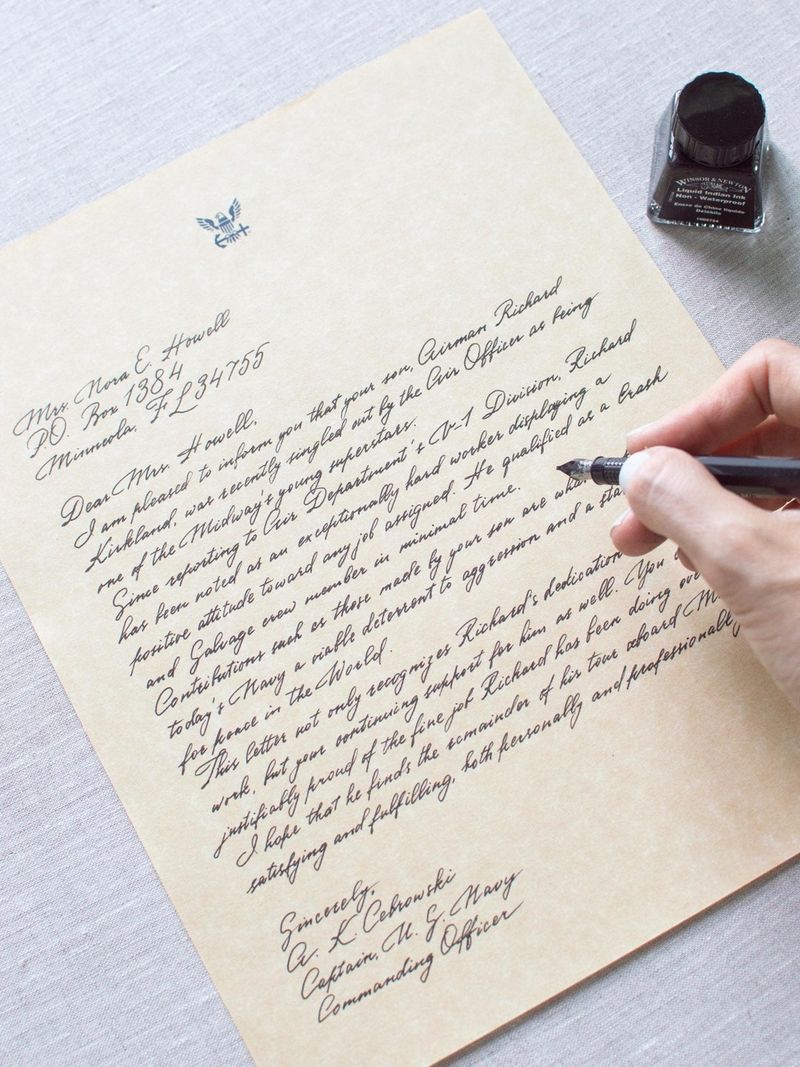 Mrs. Nora E. Howell
P.O. Box 1384
Minneola, FL 34755
Dear Mrs. Howell,
I am pleased to inform you that your son, Airman Richard
Kirkland, was recently singled out by the Air Officer as being
one of the Midway's young superstars.
Since reporting to Air Department's V-1 Division, Richard
has been noted as an exceptionally hard worker displaying a
positive attitude toward any job assigned. He qualified as a Crash
and Salvage crew member in minimal time.
Contributions such as those made by your son are
today's Navy a viable deterrent to aggression and a
for peace in the World.
This letter not only recognizes Richard's dedication
work, but your continuing support for him as well. You
justifiably proud of the fine job Richard has been doing
I hope that he finds the remainder of his tour aboard
satisfying and fulfilling, both personally and professionally
Sincerely,
A. K. Cebrowski
Captain, U. S. Navy
Commanding Officer
WINSOR & NEWTON
Liquid Indian Ink
Non - Waterproof
Encre de Chine liquide
Délébile